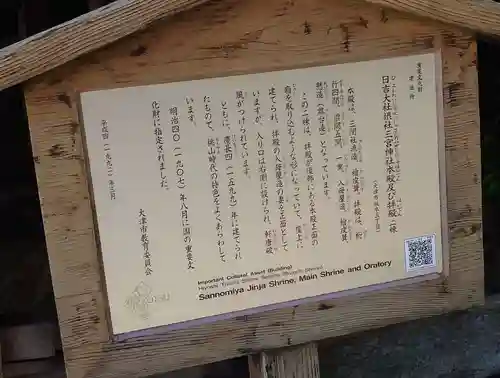 重要文化財
建造物
日吉大社摂社三宮神社本殿及び拝殿 二棟
(大津市坂本五丁目)
本殿は、三間社流造、檜皮葺、拝殿は、桁
行四間、梁間五間、一重、入母屋造、檜皮葺、
懸造(舞台造)となっています。
この二棟は、拝殿が後部にある本殿正面の
扇を取り込むような形になっていて、崖上に
建てられ、拝殿の入母屋造の妻を正面として
いますが、入り口は右側に設けられ、軒唐破
風がつけられています。
ともに、慶長四(一五九九)年に建てられ
たもので、桃山時代の特色をよくあらわして
います。
明治四〇(一九〇七)年八月に国の重要文
化財に指定されました。
平成四(一九九二)年三月
大津市教育委員会
Important Cultural Asset (Building)
Sannomiya Jinja Shrine, Main Shrine and Oratory